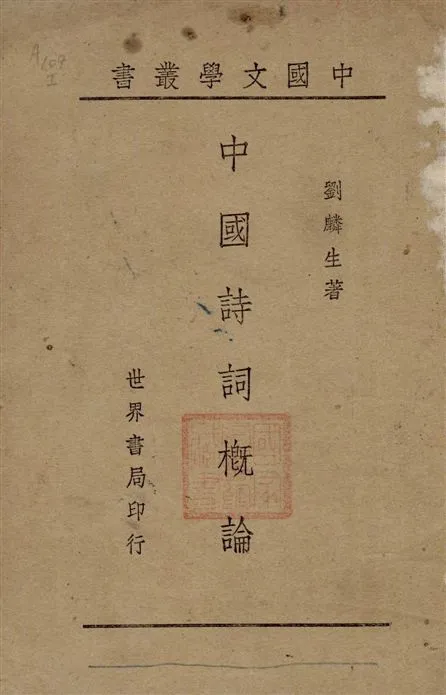 中國文學叢書
劉麟生著
中國詩詞概論
世界書局印行